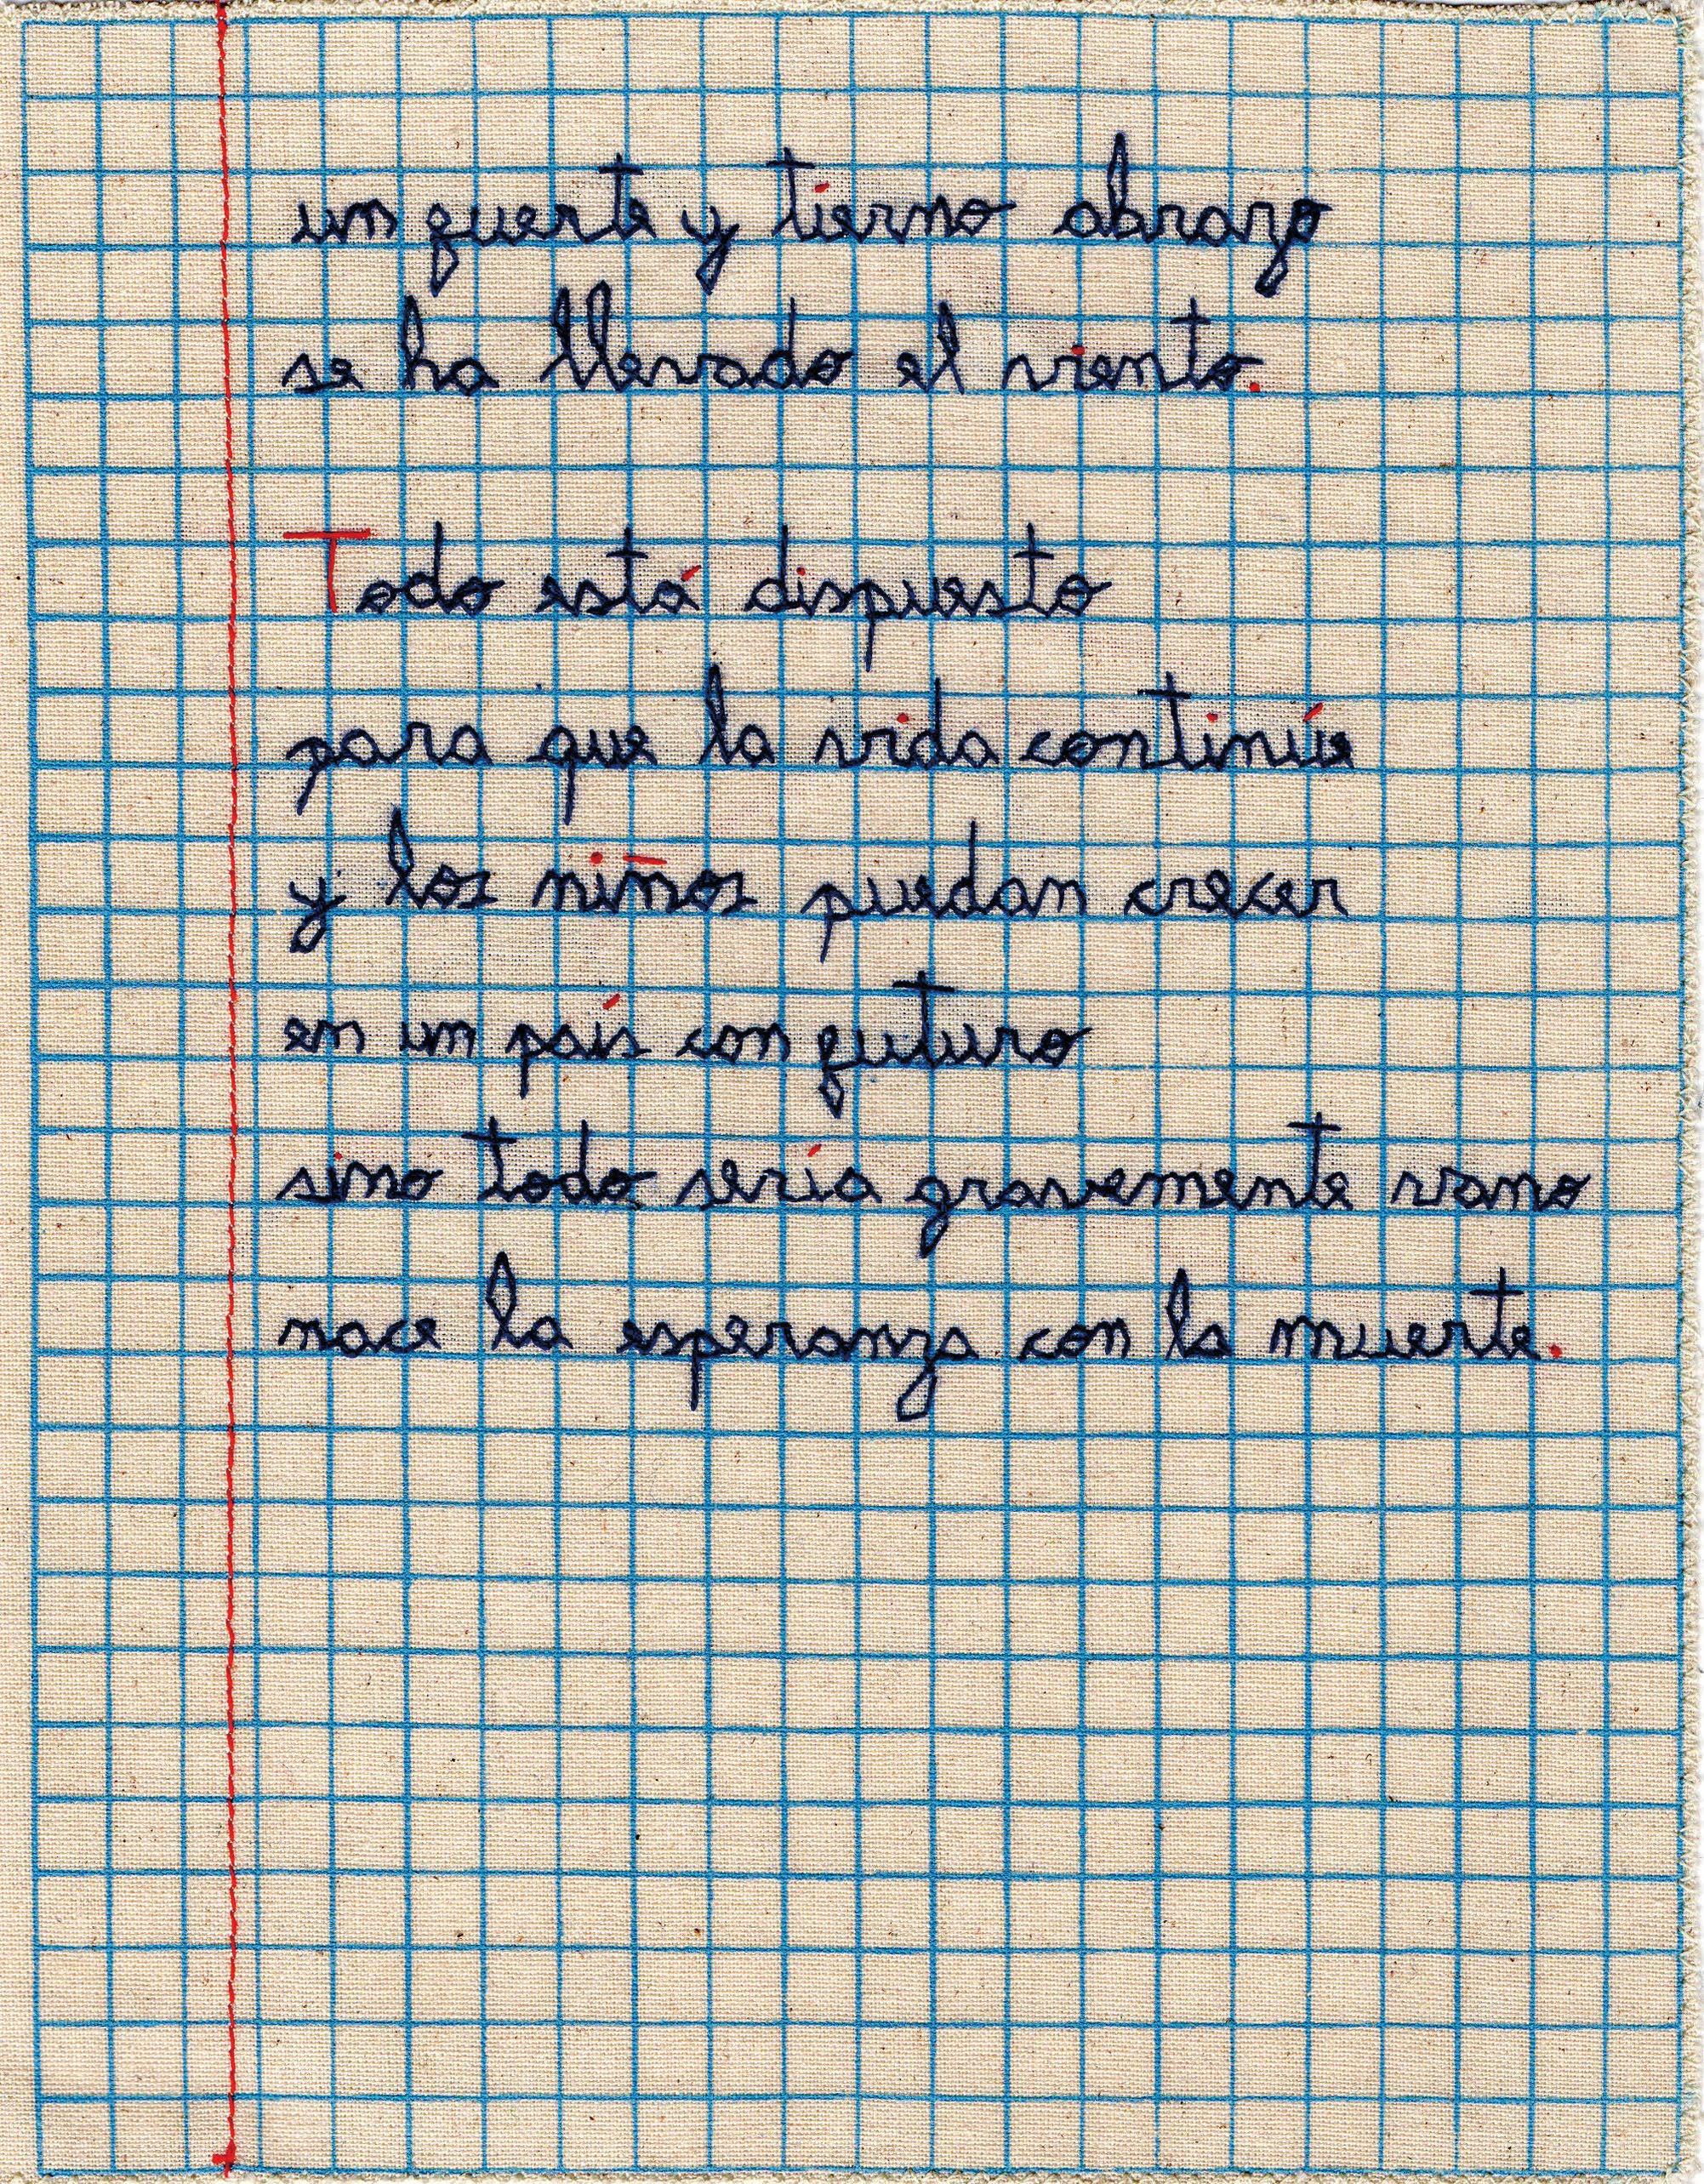 un fuerte y tierno abrazo
se ha llevado el viento.
Todo está dispuesto
para que la vida continúe
y los niños puedan crecer
en un país con futuro
sino todo sería gravemente vano
nace la esperanza con la muerte.